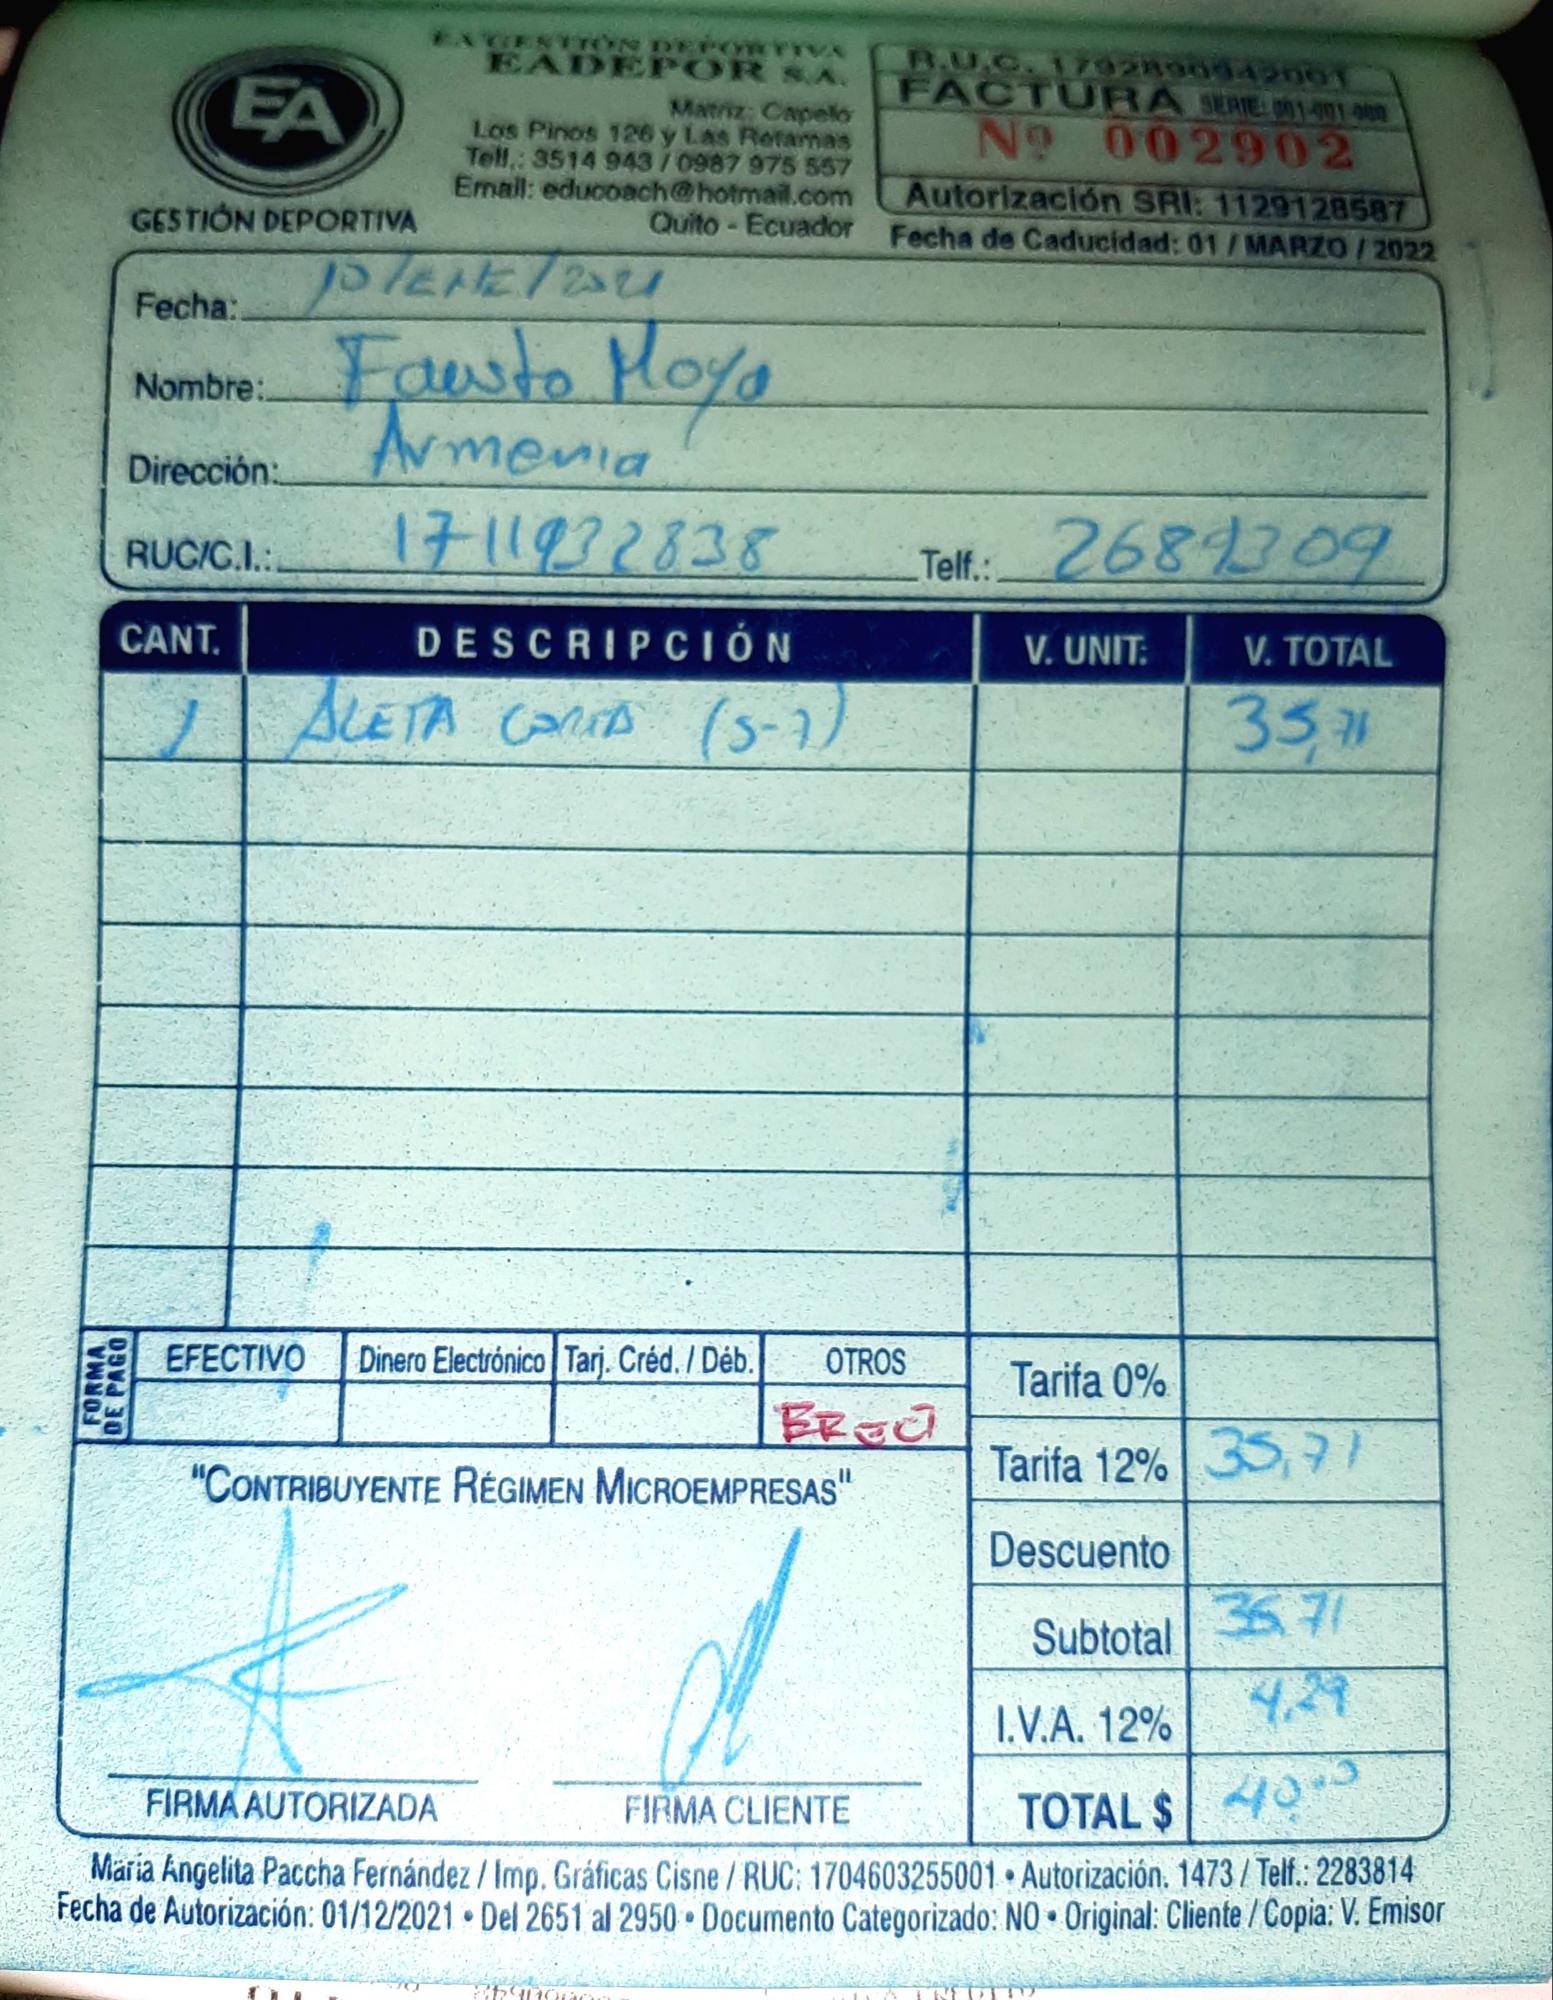 EA
GESTIÓN DEPORTIVA
EA GESTIÓN DEPORTIVA
EADEPOR S.A.
Matriz: Capelo
Los Pinos 126 y Las Retamas
Telf.: 3514 943 / 0987 975 557
Email: educoach@hotmail.com
Quito - Ecuador
R.U.C. 1792890942001
FACTURA SERIE: 001-001-000
Nº 002902
Autorización SRI: 1129128587
Fecha de Caducidad: 01 / MARZO / 2022
Fecha: 10/ENE/2021
Nombre: Fausto Moya
Dirección: Armenia
RUC/C.I.: 1711932838 Telf.: 2689309
CANT. DESCRIPCIÓN V. UNIT. V. TOTAL
1 ALETA CORTA (5-7) 35,71
FORMA DE PAGO
EFECTIVO Dinero Electrónico Tarj. Créd. / Déb. OTROS
Tarifa 0%
Tarifa 12% 35,71
"CONTRIBUYENTE RÉGIMEN MICROEMPRESAS"
Descuento
Subtotal 35,71
I.V.A. 12% 4,29
TOTAL $ 40.00
FIRMA AUTORIZADA FIRMA CLIENTE
Maria Angelita Paccha Fernández / Imp. Gráficas Cisne / RUC: 1704603255001 • Autorización. 1473 / Telf.: 2283814
Fecha de Autorización: 01/12/2021 • Del 2651 al 2950 • Documento Categorizado: NO • Original: Cliente / Copia: V. Emisor